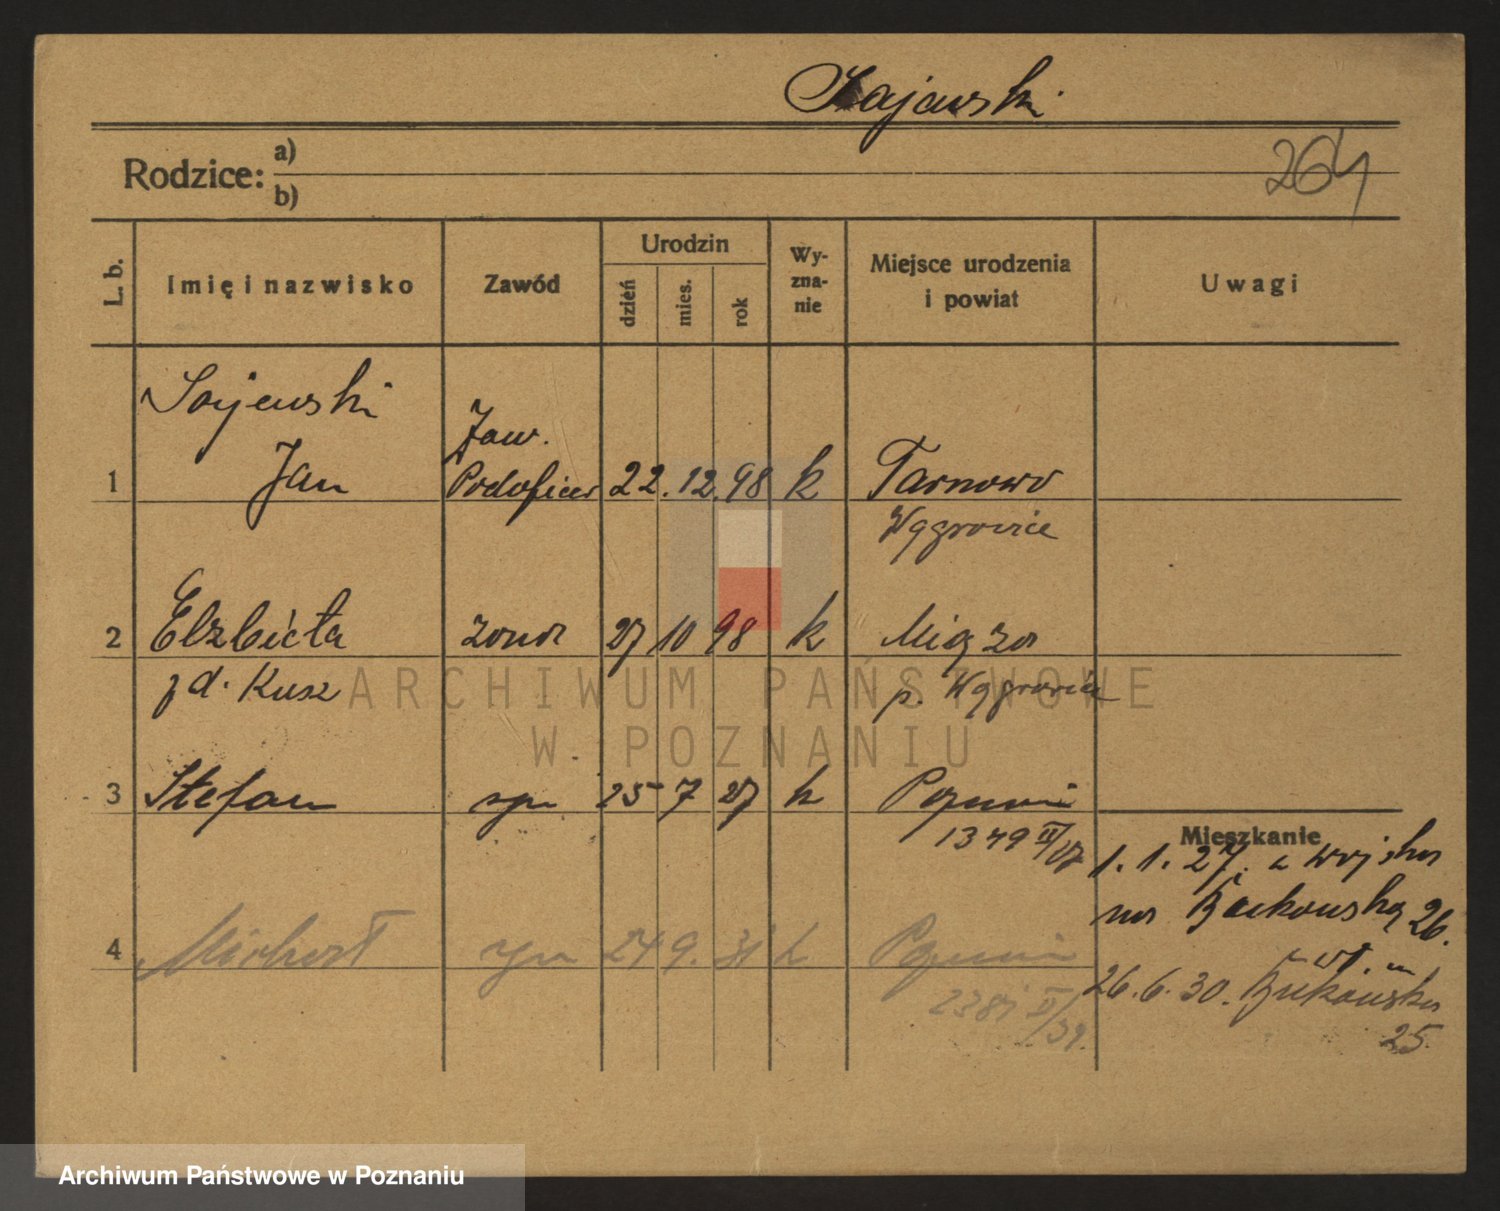 Sajewski
264
Rodzice: a)
b)
L. b.
Imię i nazwisko
Zawód
Urodzin
dzień
mies.
rok
Wy-
zna-
nie
Miejsce urodzenia
i powiat
Uwagi
Sajewski
Jan
Zaw.
1
Podoficer 22. 12. 98 k Tarnowo
Wągrowiec
2 Elżbieta żona 27 10 98 k Miąza
z d. Kusz
p. Wągrowiec
3 Stefan syn 25 7 27 k Poznań
1349 II/27
Mieszkanie
1. 1. 27. z wojska
na Bukowską 26.
4 Michał syn 24 9. 31 k Poznań
26. 6. 30. Bukowska
25.
ARCHIWUM PAŃSTWOWE
W POZNANIU
Archiwum Państwowe w Poznaniu